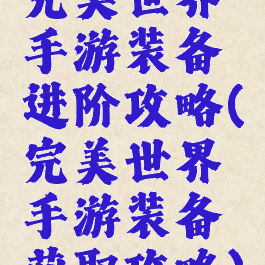 完美世界
手游装备
进阶攻略(
完美世界
手游装备
获取攻略)